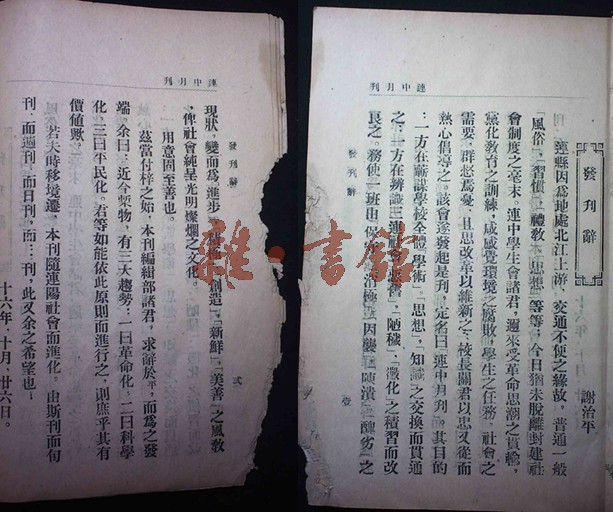 連中月刊
發刊辭
謝治平
連縣因爲地處北江上游，交通不便之緣故，普通一般
「風俗」，「習慣」，「禮敎」，「思想」等等；今日猶未脫離封建社
會制度之毫末。連中學生會諸君，邇來受革命思潮之貫輸，
黨化敎育之訓練，咸感覺環境之腐敗，學生之任務，社會之
需要，群愁焉憂，且思改革以維新之，校長關君以思又從而
熱心倡導之。該會遂發起是刊，定名曰連中月刊，其目的
：一方在蘄謀學校全體「學術」「思想」，知識之交換而貫
之；一方在辨識三連社會「舊」，「陋穢」，「腐化」之積習而改
良之。務使一班由「保守」治極，因襲，陳潰，醜劣」之
發刊辭
壹
連中月刊
發刊辭
貳
現狀，變而爲「進步」，創造，「新鮮」，「美善」之風敎
，俾社會純呈光明燦爛之文化。
用意固至善也。
茲當付梓之始，本刊編緝部諸君，求辭於平，而爲之發
端，余曰：近今萬物，有三大趨勢：一曰革命化，二曰科學
化，三曰平民化。君等如能依此原則而進行之，則庶乎其有
價値歟。
若夫時移境遷，本刊隨連陽社會而進化。由斯刊而旬
刊，而週刊，而日刊，而：：刊，此又余之希望也；
十六年，十月，廿六日。
雜·書館